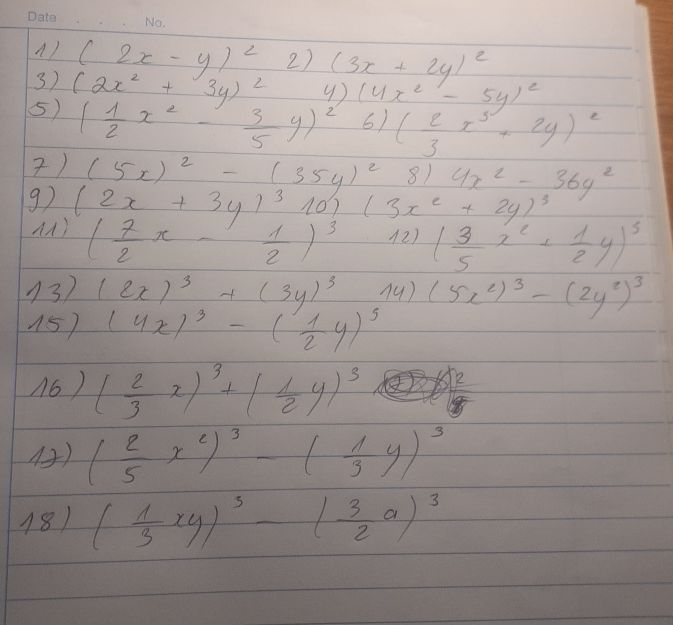 Date . . . . No.
1) ( 2x - y )² 2) (3x + 2y)²
3) (2x² + 3y)² 4) (4x² - 5y)²
5) (1/2 x² - 3/5 y)² 6) (2/3 x³ + 2y)²
7) (5x)² - (35y)² 8) 4x² - 36y²
9) (2x + 3y)³ 10) (3x² + 2y)³
11) (7/2 x - 1/2)³ 12) (3/5 x² + 1/2 y)³
13) (2x)³ + (3y)³ 14) (5x²)³ - (2y²)³
15) (4x)³ - (1/2 y)³
16) (2/3 x)³ + (1/2 y)³
17) (2/5 x²)³ - (1/3 y)³
18) (1/3 xy)³ - (3/2 a)³